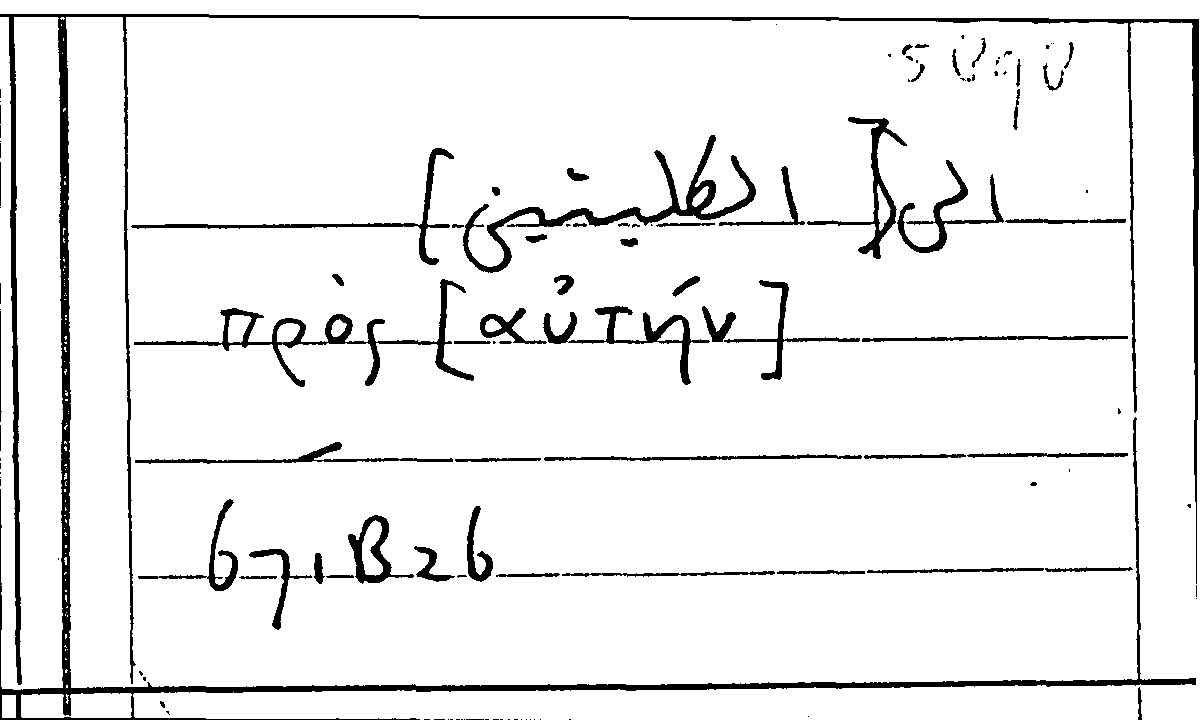 5090
الى [الكليتين]
πρὸς [αὐτήν]
671B26